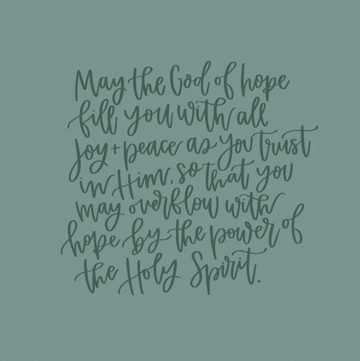 May the God of hope
fill you with all
joy + peace as you trust
in Him, so that you
may overflow with
hope by the power of
the Holy Spirit.